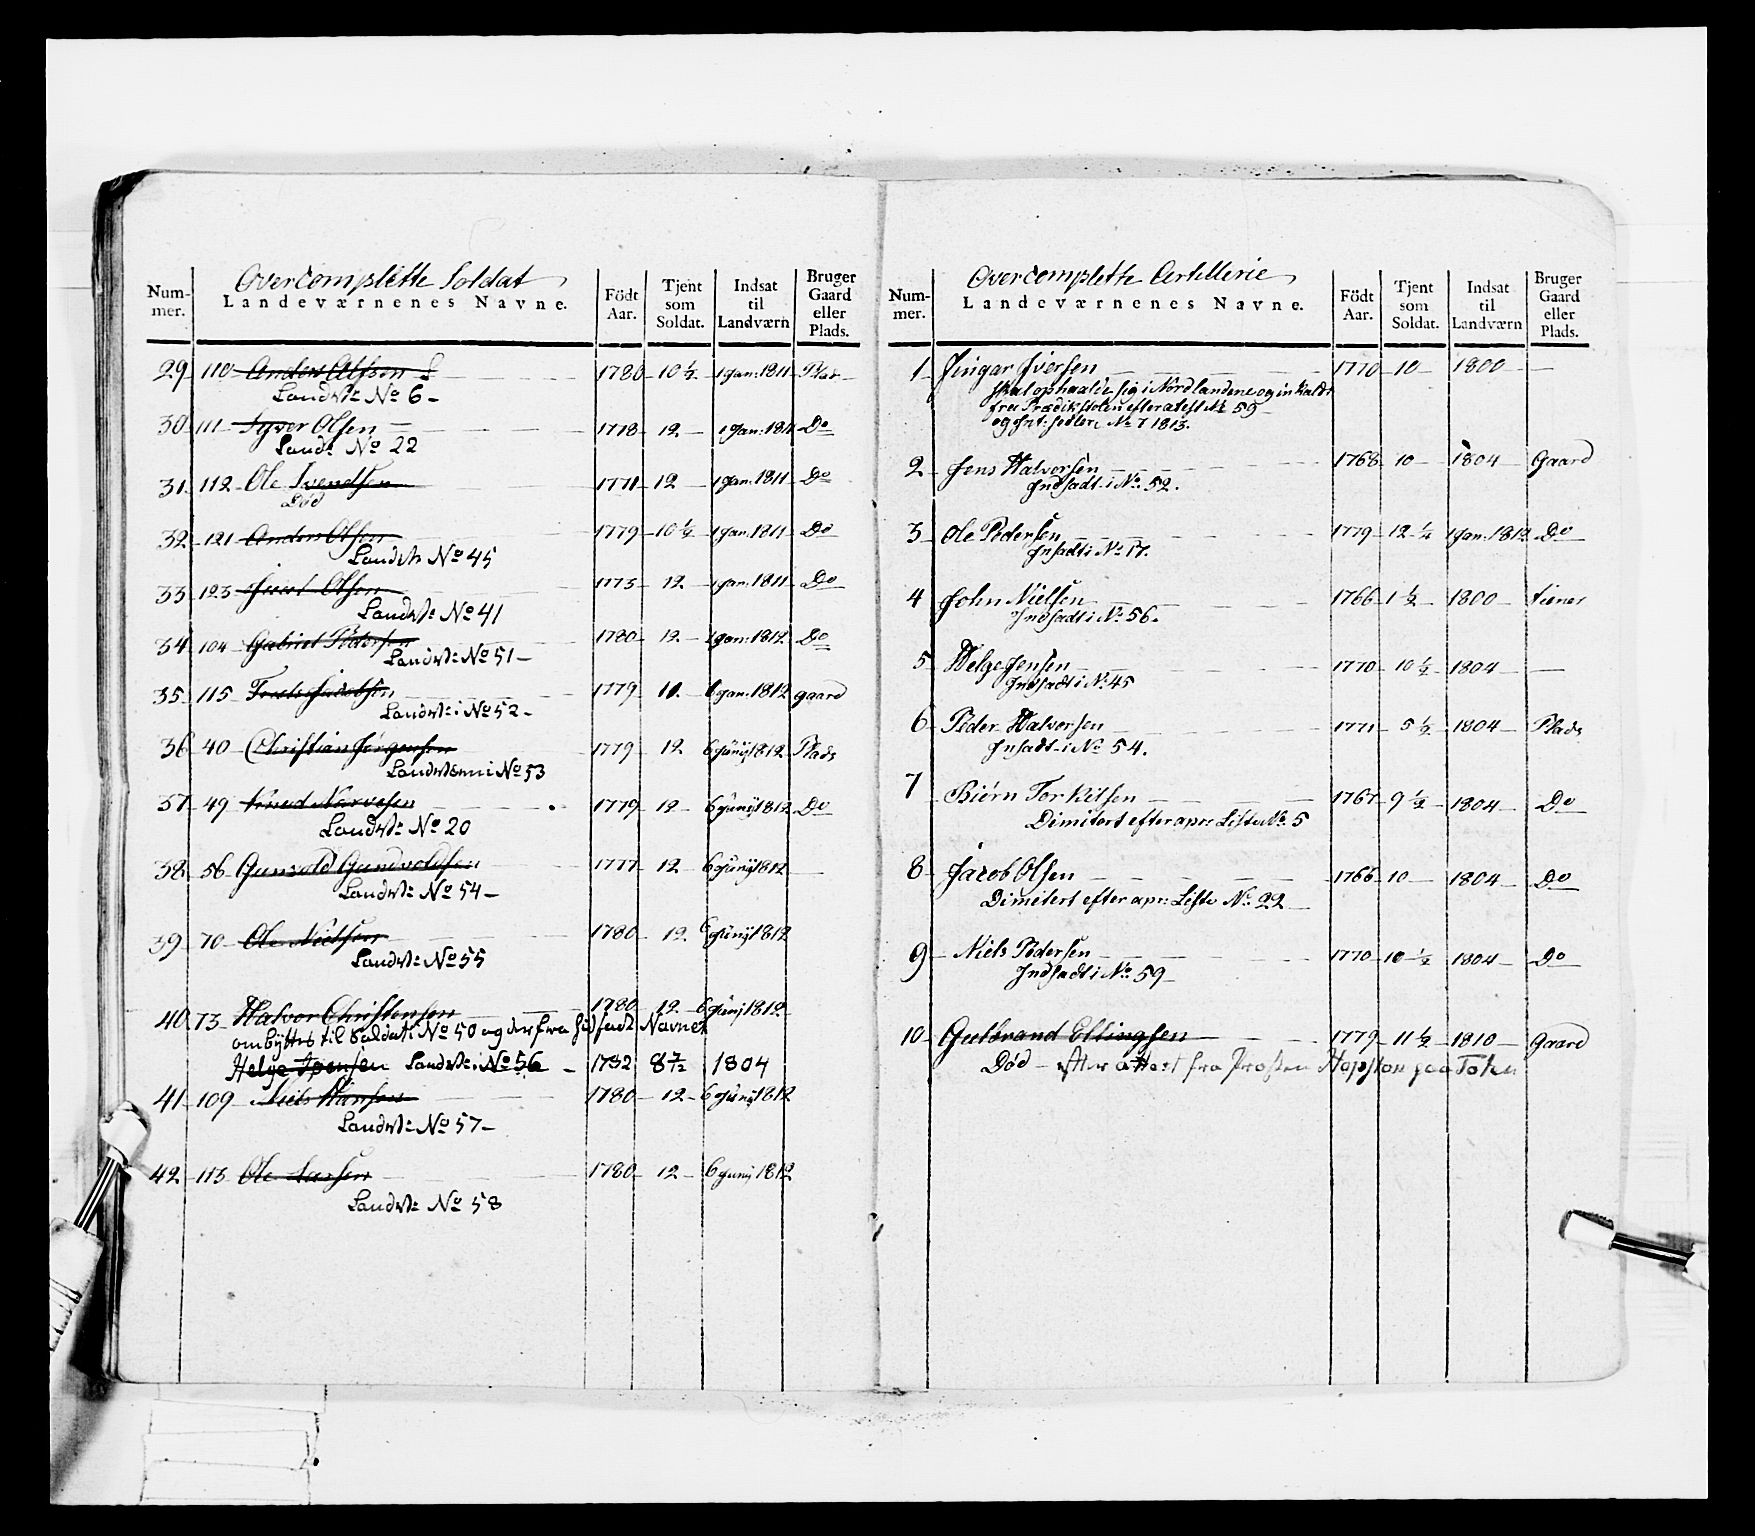 Overcomplette Soldat
Num-
mer.
Landeværnenes Navne.
Födt
Aar.
Tjent
som
Soldat.
Indsat
til
Landværn
Bruger
Gaard
eller
Plads.
29 110 Anders Olsen 1780 10 ½ 1 Jan: 1811
Landv: No 6
30 111 Syver Olsen 1778 12 1 Jan: 1811 Do
Landv: No 22
31 112 Ole Svendsen 1771 12 1 Jan: 1811 Do
Död
32 121 Anders Olsen 1779 10 ½ 1 Jan: 1811 Do
No 45
33 123 Olsen 1773 12 1 Jan: 1811 Do
Landv: No 41
34 104 Gabriel Pedersen 1780 12 1 Jan: 1812 Do
Landv: No 51
35 115 1779 11 1 Jan: 1812 gaard
Landv: i No 52
36 40 Christian Jörgensen 1779 12 6 Junij 1812 Plads
i No 53
37 49 Knud Narvesen 1779 12 6 Junij 1812 Do
Landv: No 20
38 56 Gunvold Gundvoldsen 1777 12 6 Junij 1812
Landv: No 54
39 70 Ole Nielsen 1780 12 6 Junij 1812
Landv: No 55
40 73 Halvor Christensen 1780 12 6 Junij 1812
ombÿttes til Soldat i No 50 og derfra Navnet
Helge Landv: i No 56 1782 1804
41 109 Niels Hansen 1780 12 6 Junij 1812
Landv: No 57
42 113 Ole Larsen 1780 12 6 Junij 1812
Landv: No 58
Overcomplette Artillerie
Num-
mer.
Landeværnenes Navne.
Födt
Aar.
Tjent
som
Soldat.
Indsat
til
Landværn
Bruger
Gaard
eller
Plads.
1 Iversen 1770 10 1800
Skal opholde sig i Nordlandene og
fra Prædikestolen efter atest No 59
No 7 1813.
2 Jens Halvorsen 1768 10 1804 Gaard
Indsadt i No 52.
3 Ole Pedersen 1779 12 ¼ 1 Jan: 1812 Do
Insadt i No 17.
4 John Nielsen 1766 1 ½ 1800 tiener
Indsadt i No 56.
5 Helge Jensen 1770 10 ½ 1804
Indsadt i No 45
6 Peder Halvorsen 1771 5 ½ 1804 Plads
Insadt i No 54.
7 Biörn Torkilsen 1767 9 ½ 1804 Do
Dimitert efter apr: Liste No 5
8 Jacob Olsen 1766 10 1804 Do
Dimitert efter apr: Liste No 22
9 Niels Pedersen 1770 10 ½ 1804 Do
Indsadt i No 59
10 Gulbrand Ellingsen 1779 11 ½ 1810 Gaard
Död efter attest fra Prosten paa Toten